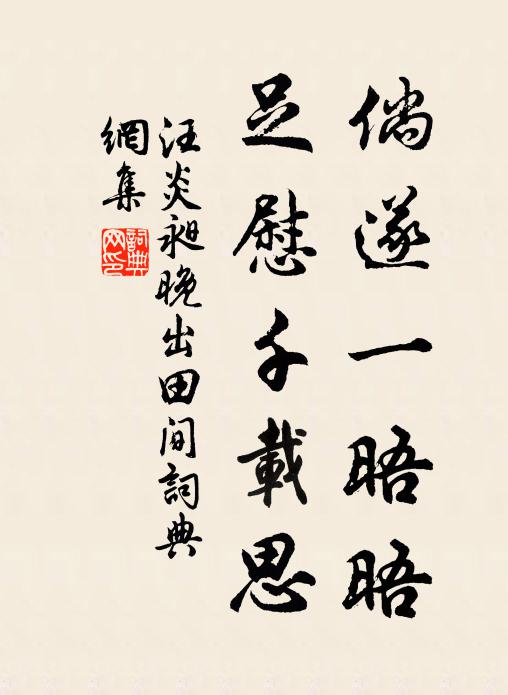 倘遂一晤晤
足慰千載思
汪炎昶晚出田間詞典
網集
詞典
网印